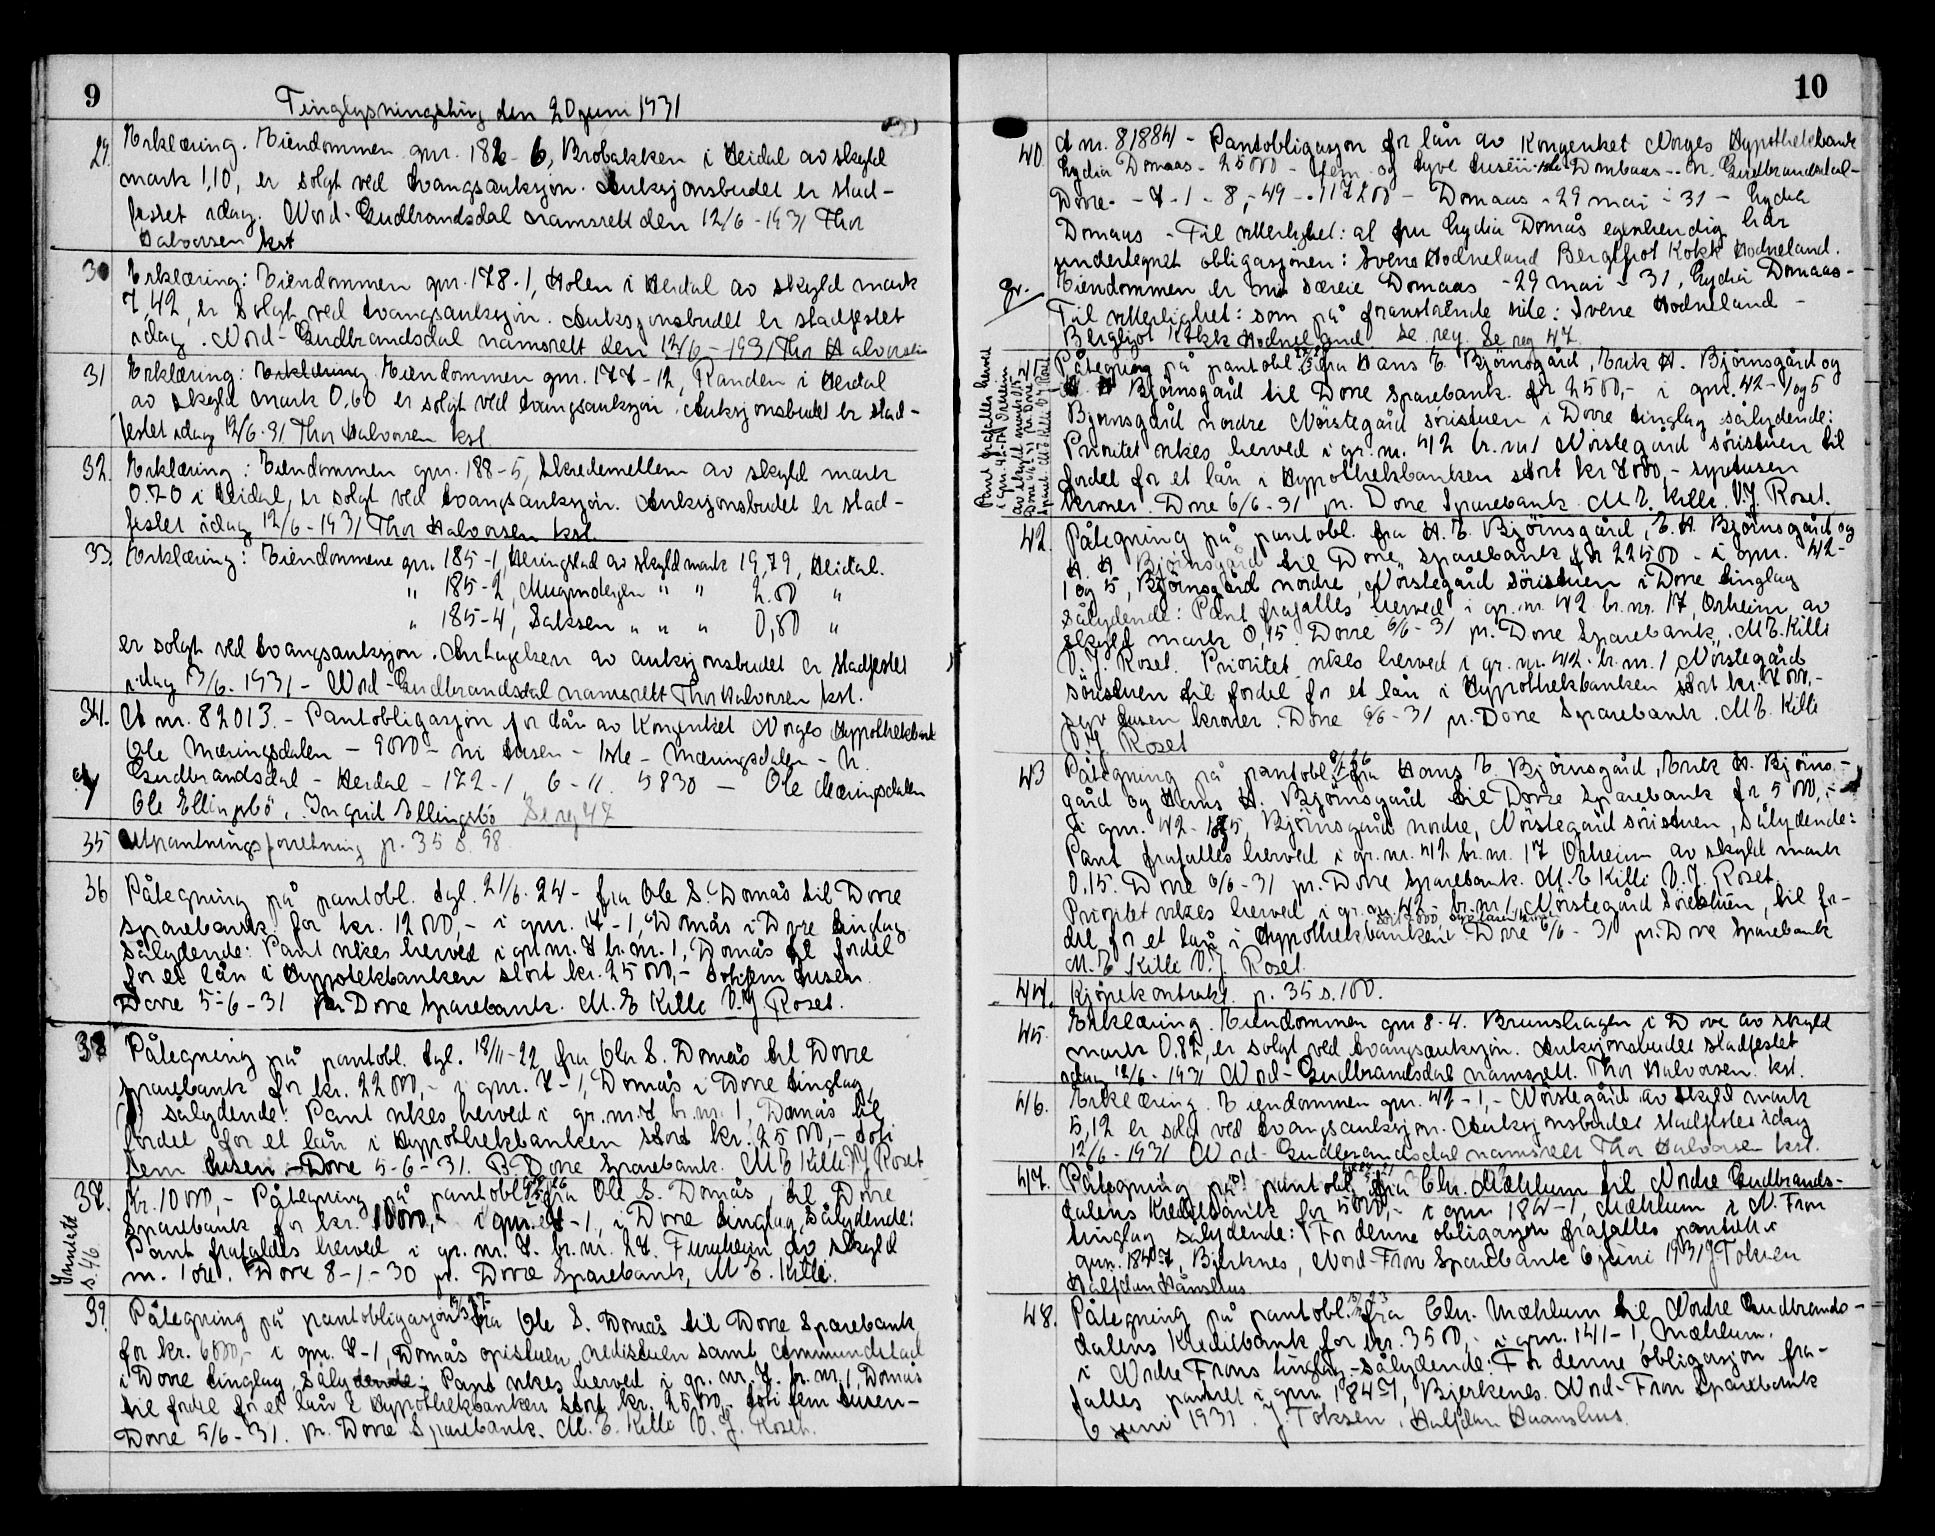 9
Tinglysningsting den 20 juni 1931
29. Erklæring. Eiendommen gnr. 182-6, Brobakken i Heidal av skyld
mark 1,10, er solgt ved tvangsauksjon. Auksjonsbudet er stad-
festet idag. Nord-Gudbrandsdal namsrett den 12/6-1931 Thor
Halvorsen kst
30 Erklæring: Eiendommen gnr. 178-1, Holen i Heidal av skyld mark
7,42, er solgt ved tvangsauksjon. Auksjonsbudet er stadfestet
idag. Nord-Gudbrandsdal namsrett den 12/6-1931 Thor Halvorsen
31 Erklæring: Erklæring Eiendommen gnr. 177-12, Randen i Heidal
av skyld mark 0,60 er solgt ved tvangsauksjon. Auksjonsbudet er stad-
festet idag 12/6-31 Thor Halvorsen kst.
32. Erklæring: Eiendommen gnr. 188-5, Skredemellem av skyld mark
0.70 i Heidal, er solgt ved tvangsauksjon. Auksjonsbudet er stad-
festet idag 12/6-1931 Thor Halvorsen kst.
33. Erklæring: Eiendommene gnr. 185-1, Heringstad av skyldmark 19,79, Heidal.
" 185-2, " " 2.00 "
" 185-4, Saksen " " " 0,80 "
er solgt ved tvangsauksjon. Antagelsen av auksjonsbudet er stadfestet
idag 13/6. 1931 - Nord-Gudbrandsdal namsrett Thor Halvorsen kst.
34. A nr. 82013. - Pantobligasjon for lån av Kongeriket Norges Hypothekbank
Ole Mæringsdalen - 9000 - ni tusen - 1ste - Mæringsdalen - N.
Gudbrandsdal - Heidal - 172-1 6-11. 5830 - Ole Mæringsdalen
Ole Ellingsbö, Ingrid Ellingsbö Se reg 47
35 Utpantningsforretning p. 35 s. 98
36 Påtegning på pantobl. tgl. 21/6-24 - fra Ole S. Domås til Dovre
sparebank for kr. 12000,- i gnr. 7-1, Domås i Dovre tinglag
sålydende: Pant vikes herved i gr.nr. 7 br.nr. 1, Domås til fordel
for et lån i Hypotekbanken stort kr. 25000,- totifem tusen
Dovre 5-6-31 pr. Dovre Sparebank. M. E Kille O. J Roset.
38 Påtegning på pantobl. tgl. 18/11-22 fra Ola S. Domås til Dovre
sparebank for kr. 22000,- i gnr. 7-1, Domås i Dovre tinglag,
sålydende: Pant vikes herved i gr.nr. 7 br.nr. 1, Domås til
fordel for et lån i Hypothekbanken stort kr. 25000,- toti
fem tusen - Dovre 5-6-31. P. Dovre Sparebank. M E Kille O J Roset
37. kr. 10000,- Påtegning på pantobl. fra Ole S. Domås til Dovre
sparebank for kr. 10000,- i gnr. 7-1, i Dovre tinglag, sålydende:
Pant frafaldes herved i gr. nr. 7. br. nr. 27. Furuheim av skyld
m. 1 øre. Dovre 8-1-30 pr. Dovre Sparebank, M E. Kille.
s. 46
39. Påtegning på pantobligasjon fra Ole S. Domås til Dovre Sparebank
for kr. 6000,- i gnr. 7-1, Domås opistuen, nedistuen samt
i Dovre tinglag, sålydende: Pant vikes herved i gr. nr. 7. br. nr. 1, Domås
til fordel for et lån i Hypothekbanken stort kr. 25000,- toti fem tusen -
Dovre 5/6-31. pr. Dovre Sparebank. M. E. Kille O. J. Roset.
10
40. A nr. 81884 - Pantobligasjon for lån av Kongeriket Norges Hypothekbank
Lydia Domaas - 25000 - fem og tyve tusen - 1ste Dombaas - N. Gudbrandsdal -
Dovre - 7-1-8,-49 - 117200 - Domaas - 29 mai - 31 - Lydia
Domaas - Til vitterlighet: at fru Lydia Domås egenhendig har
undertegnet obligasjonen: Sverre Hodneland Bergljot Kokk Hodneland.
Eiendommen er min særeie Domaas - 29 mai - 31, Lydia Domaas -
Til vitterlighet: som på framstående side: Sverre Hodneland -
Bergljot Kokk Hodneland se reg. Se reg 47
41. Påtegning på pantobl. fra Hans E. Bjørnsgård, Erik H. Bjørnsgård og
H. H Bjørnsgård til Dovre Sparebank for 2500,- i gnr. 42-1 og 5
Bjørnsgård nordre Nörstegård söristuen i Dovre tinglag sålydende:
Prioritet vikes herved i gr. nr. 42 br. nr 1 Nörstegard söristuen til
fordel for et lån i Hypothekbanken stort kr 7000,- syvtusen
kroner. Dovre 6/6-31 pr. Dovre Sparebank M. E. Kille. O. J. Roset.
Pant frafalles herved
i gnr. 42-17 Orheim
av skyld mark 0,15
Dovre 6/6-31 pr Dovre
Spareb. M. E Kille O J Roset
42. Påtegning på pantobl. fra H. E. Bjørnsgård, E. H. Bjørnsgård og
H. H. Bjørnsgård til Dovre sparebank for 22500 - i gnr. 42-
1 og 5, Bjørnsgård nordre, Nörstegård söristuen i Dovre tinglag
sålydende: Pant frafalles herved i gr. nr. 42 br. nr. 17, Orheim av
skyld mark 0,15. Dovre 6/6-31 pr. Dovre Sparebank, M E. Kille
O. J. Roset. Prioritet vikes herved i gr. nr. 42. br. nr. 1 Nörstegård
söristuen til fordel for et lån i Hypothekbanken stort kr. 7000,-
syv tusen kroner. Dovre 6/6-31 pr. Dovre Sparebank. M E. Kille
O. J. Roset
43 Påtegning på pantobl. fra Hans E. Bjørnsgård, Erik H. Bjørns-
gård og Hans H. Bjørnsgård til Dovre Sparebank for 5000,-
i gnr. 42-1&5, Bjørnsgård nordre, Nörstegård söristuen, sålydende:
Pant frafalles herved i gr. nr. 42 br. nr. 17 Orheim av skyld mark
0.15. Dovre 6/6-31 pr. Dovre Sparebank. M. E Kille O. J. Roset.
Prioritet vikes herved i gr. nr. 42 - br. nr 1, Nörstegård Söristuen, til for-
del for et lån i Hypothekbanken stort 7000, syvtusen kroner. Dovre 6/6-31 pr. Dovre Sparebank
M. E Kille O. J. Roset.
44. Kjöpekontrakt. p. 35 s. 100.
45. Erklæring. Eiendommen gnr 8-4. Brunshagen i Dovre av skyld
mark 0.82, er solgt ved tvangsauksjon. Auksjonsbudet stadfestet
idag 12/6-1931 Nord-Gudbrandsdal namsrett. Thor Halvorsen kst.
46. Erklæring. Eiendommen gnr. 42-1,- Nörstegård av skyld mark
5,12 er solgt ved tvangsauksjon. Auksjonsbudet stadfestet idag
12/6-1931 Nord-Gudbrandsdal namsrett Thor Halvorsen kst.
47. Påtegning på pantobl. fra Chr. Mæhlum til Nordre Gudbrands-
dalens Kreditbank for 5000,- i gnr 184-1, Mæhlum i N. Fron
tinglag sålydende: For denne obligasjon frafalles pantett i
gnr. 184-7, Bjerknes, Nord-Fron Sparebank 6 juni 1931 J. Toksen
Halfdan Hånshus
48. Påtegning på pantobl. fra Chr. Mæhlum til Nordre Gudbrands-
dalens Kreditbank for kr. 3500,- i gnr. 141-1, Mæhlum.
i Nordre Frons tinglag - sålydende: For denne obligasjon fra-
falles pantett i gnr. 184-7, Bjerkenes. Nord-Fron Sparebank
6 juni 1931. J Toksen. Halfdan Haanshus.